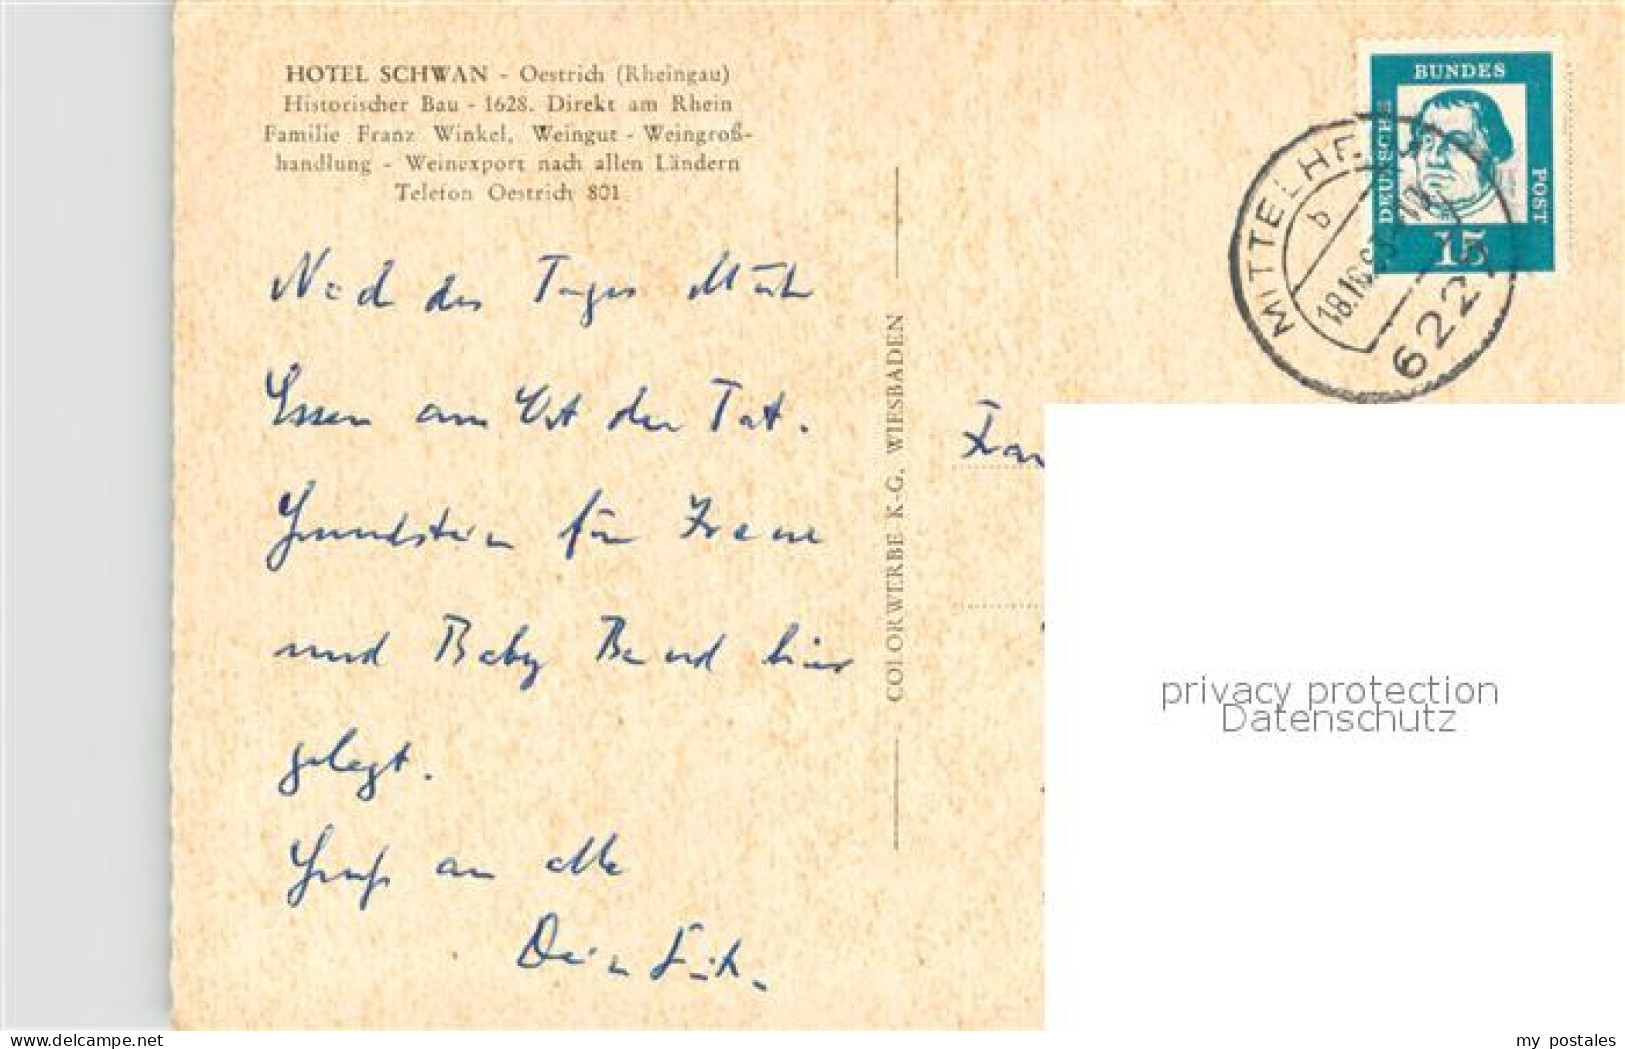 HOTEL SCHWAN - Oestrich (Rheingau)
Historischer Bau - 1628. Direkt am Rhein
Familie Franz Winkel, Weingut - Weingroß-
handlung - Weinexport nach allen Ländern
Telefon Oestrich 801
Nach des Tages Müh
Essen am Ort der Tat.
Grundstein für
und Baby Bernd hier
gelegt.
Gruß an alle
Dein
COLORWERBE K-G. WIESBADEN
DEUTSCHE
BUNDES
POST
15
MITTELHE
b
18.10.6
622
privacy protection
Datenschutz
delcampe.net
my postales